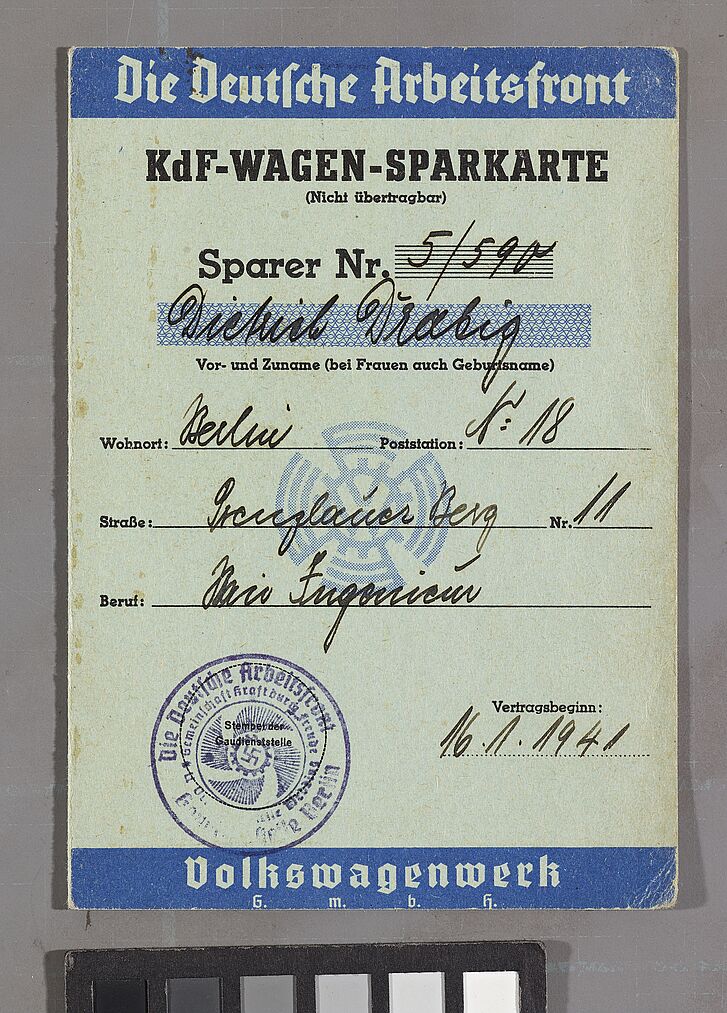 Die Deutsche Arbeitsfront
KdF-WAGEN-SPARKARTE
(Nicht übertragbar)
Sparer Nr. 5/590
Dietrich Drabig
Vor- und Zuname (bei Frauen auch Geburtsname)
Wohnort: Berlin Poststation: N: 18
Straße: Prenzlauer Berg Nr. 11
Beruf: Ingenieur
Die Deutsche Arbeitsfront
Gemeinschaft Kraft durch Freude
Stempel der
Gaudienststelle
Berlin
Vertragsbeginn:
16.1.1941
Volkswagenwerk
G. m. b. H.